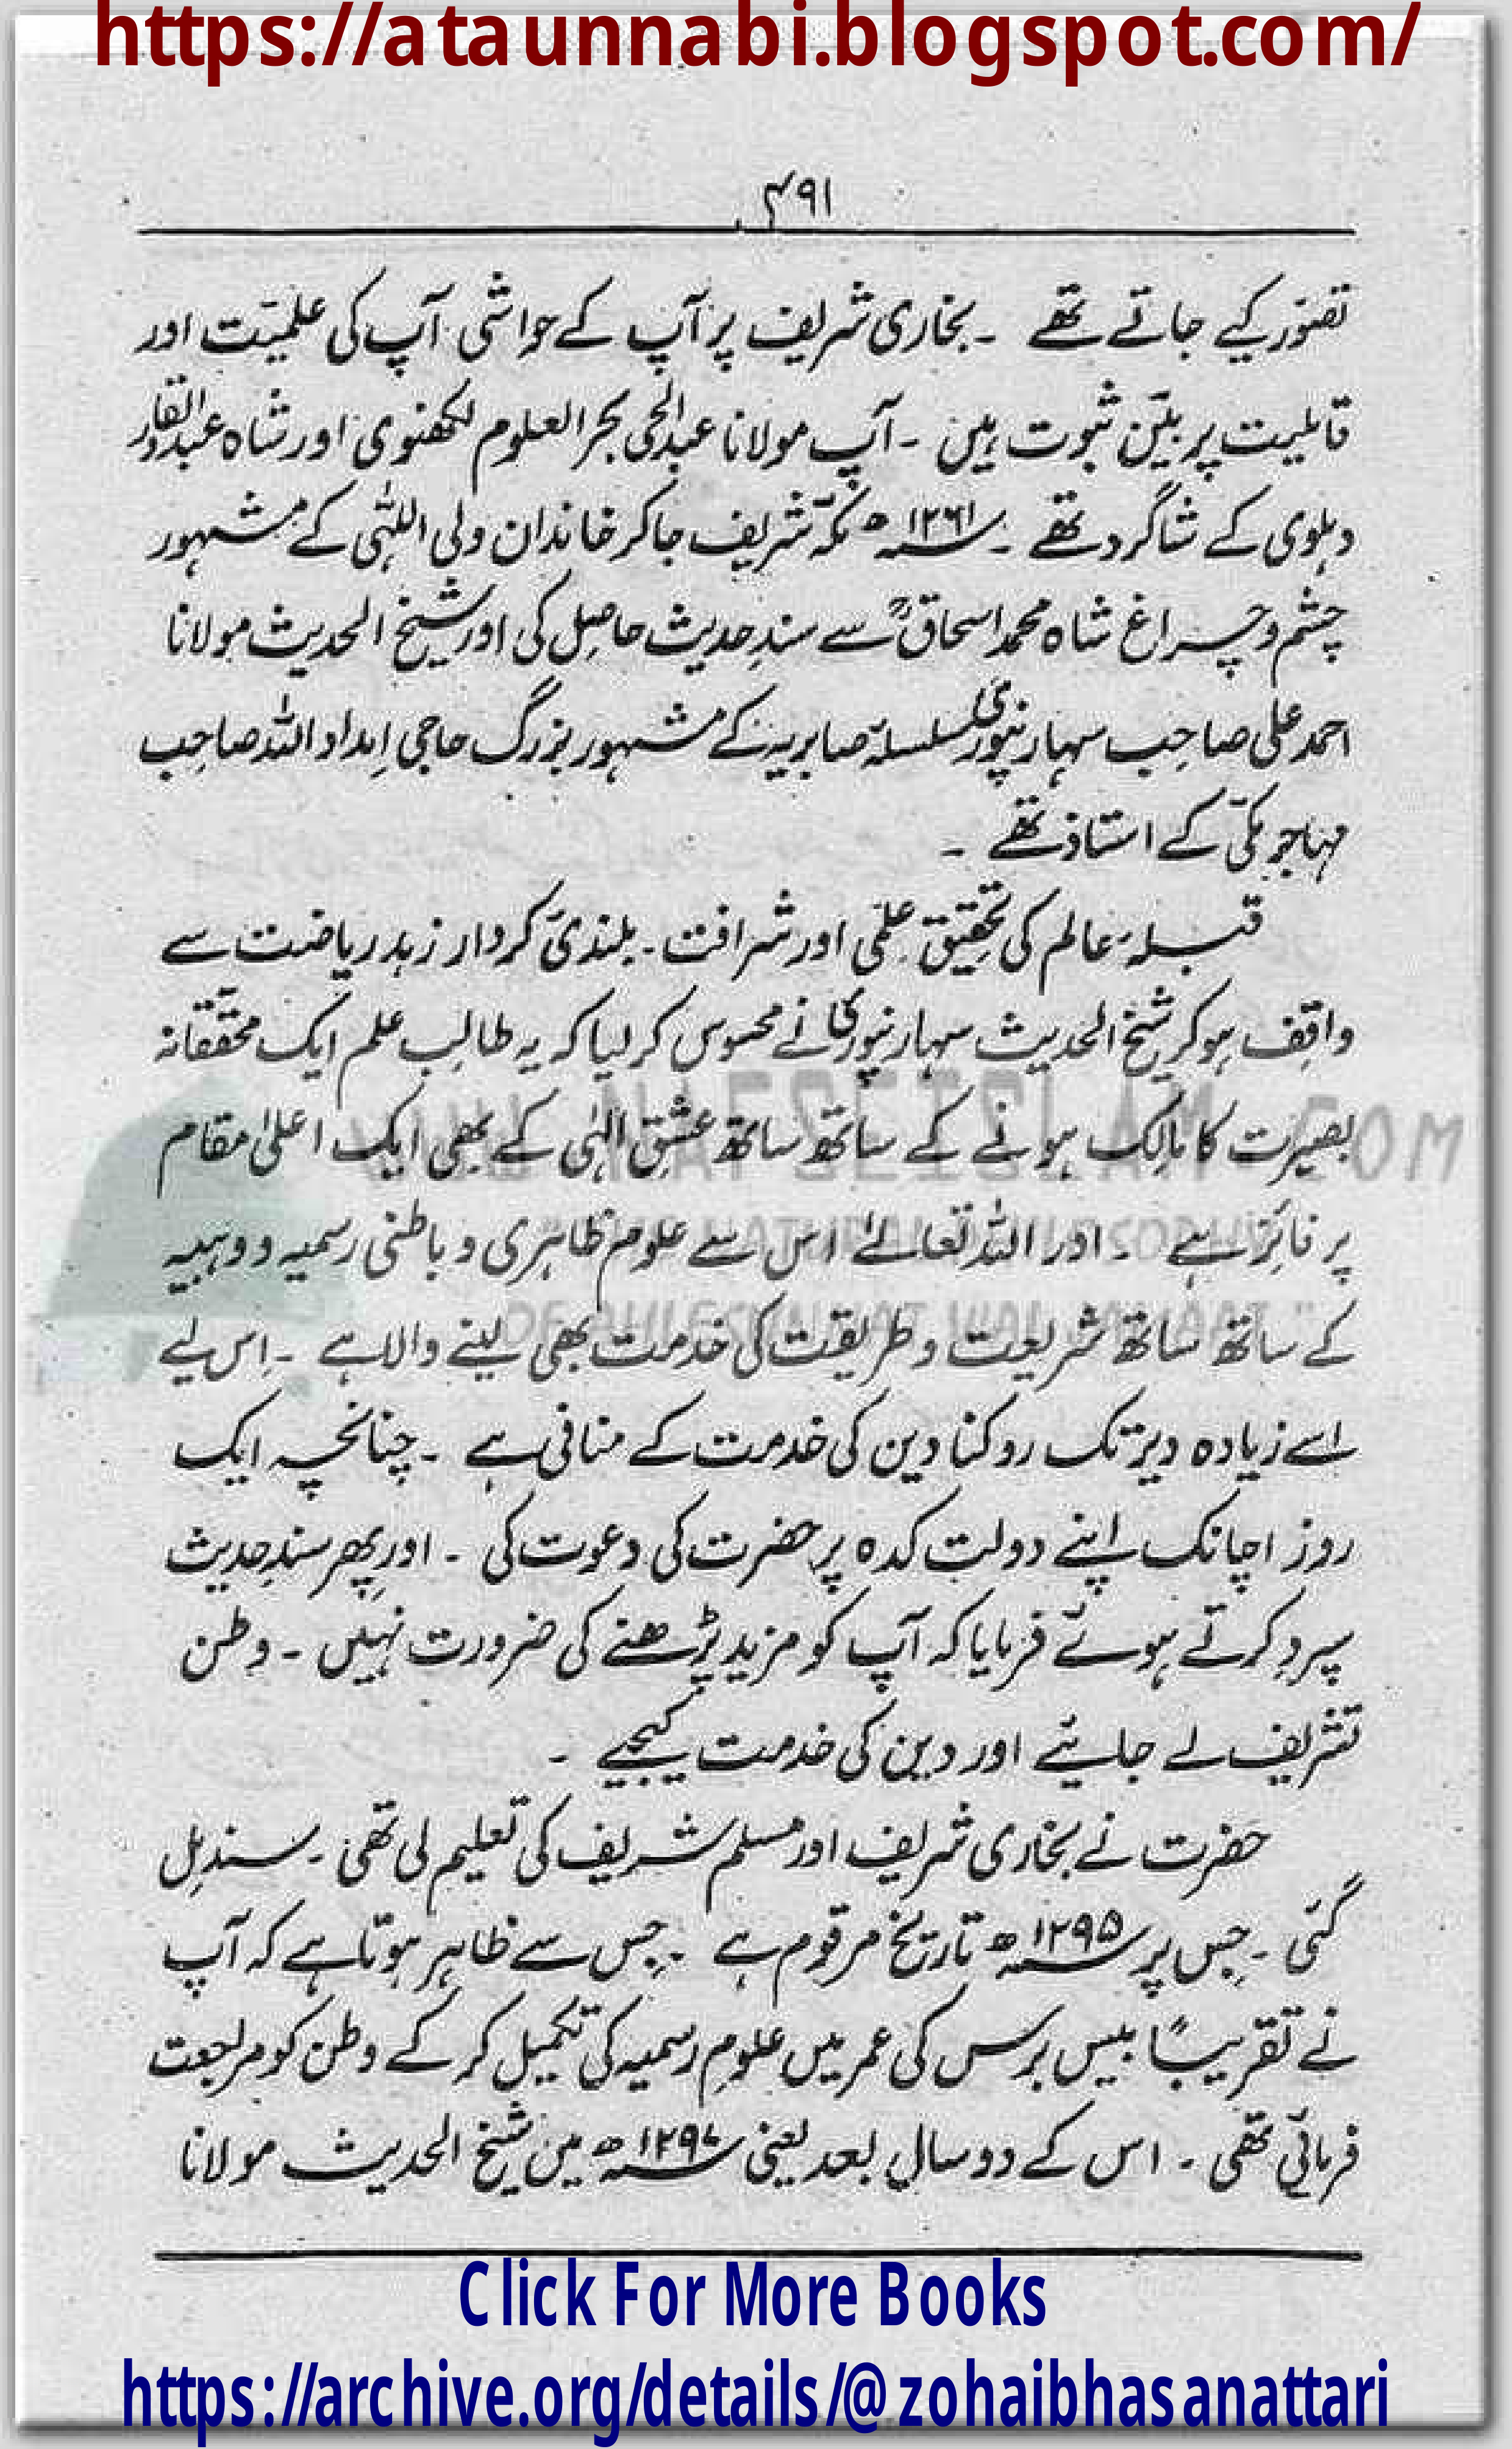 https://ataunnabi.blogspot.com/
۴۹۱
تصوّر کیے جاتے تھے ۔ بخاری شریف پر آپ کے حواشی آپ کی علمیّت اور
قابلیت پر بیّن ثبوت ہیں ۔ آپ مولانا عبدالحی بحر العلوم لکھنوی اور شاہ عبدالقادر
دہلوی کے شاگرد تھے ۔ ۱۲۶۱ھ مکّہ شریف جا کر خاندان ولی اللّٰہی کے مشہور
چشم و چراغ شاہ محمد اسحاقؒ سے سندِ حدیث حاصل کی اور شیخ الحدیث مولانا
احمد علی صاحب سہارنپوری سلسلۂ صابریہ کے مشہور بزرگ حاجی امداد اللہ صاحب
مہاجر مکّی کے استاذ تھے ۔
قبلۂ عالم کی تحقیق علمی اور شرافت ۔ بلندیٔ کردار زہد ریاضت سے
واقف ہو کر شیخ الحدیث سہارنپوری نے محسوس کر لیا کہ یہ طالبِ علم ایک محقّقانہ
بصیرت کا مالک ہونے کے ساتھ ساتھ عشقِ الٰہی کے بھی ایک اعلیٰ مقام
پر فائز ہے ۔ اور اللہ تعالےٰ اس سے علوم ظاہری و باطنی رسمیہ و وہبیہ
کے ساتھ ساتھ شریعت و طریقت کی خدمت بھی لینے والا ہے ۔ اِس لیے
اسے زیادہ دیر تک روکنا دین کی خدمت کے منافی ہے ۔ چنانچہ ایک
روز اچانک اپنے دولت کدہ پر حضرت کی دعوت کی ۔ اور پھر سندِ حدیث
سپرد کرتے ہوئے فرمایا کہ آپ کو مزید پڑھنے کی ضرورت نہیں ۔ وطن
تشریف لے جایئے اور دین کی خدمت کیجیے ۔
حضرت نے بخاری شریف اور مسلم شریف کی تعلیم لی تھی ۔ سند مِل
گئی ۔ جس پر ۱۲۹۵ھ تاریخ مرقوم ہے ۔ جس سے ظاہر ہوتا ہے کہ آپ
نے تقریباً بیس برس کی عمر میں علومِ رسمیہ کی تکمیل کر کے وطن کو مراجعت
فرمائی تھی ۔ اس کے دو سال بعد یعنی ۱۲۹۷ھ میں شیخ الحدیث مولانا
Click For More Books
https://archive.org/details/@zohaibhasanattari